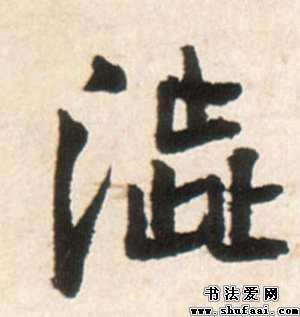 澁
书法爱网
www.shufaai.com